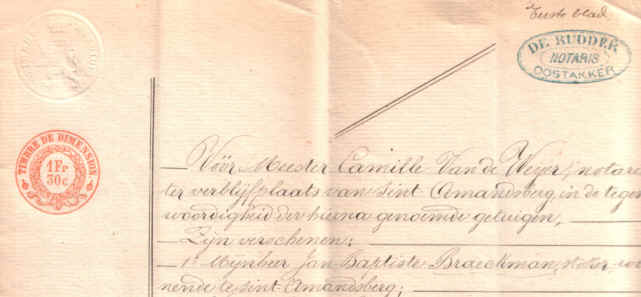 Eerste blad
DE RUDDER
NOTARIS
OOSTAKKER
TIMBRE DE DIMENSION
1 Fr
30 c
Vóór Meester Camille Van de Weyer, notaris
ter verblijfplaats van Sint Amandsberg, in de tegen
woordigheid der hierna genoemde getuigen,
Zijn verschenen:
1° Mijnheer Jan Baptiste Braeckman, stoker wo
nende te Sint-Amandsberg;